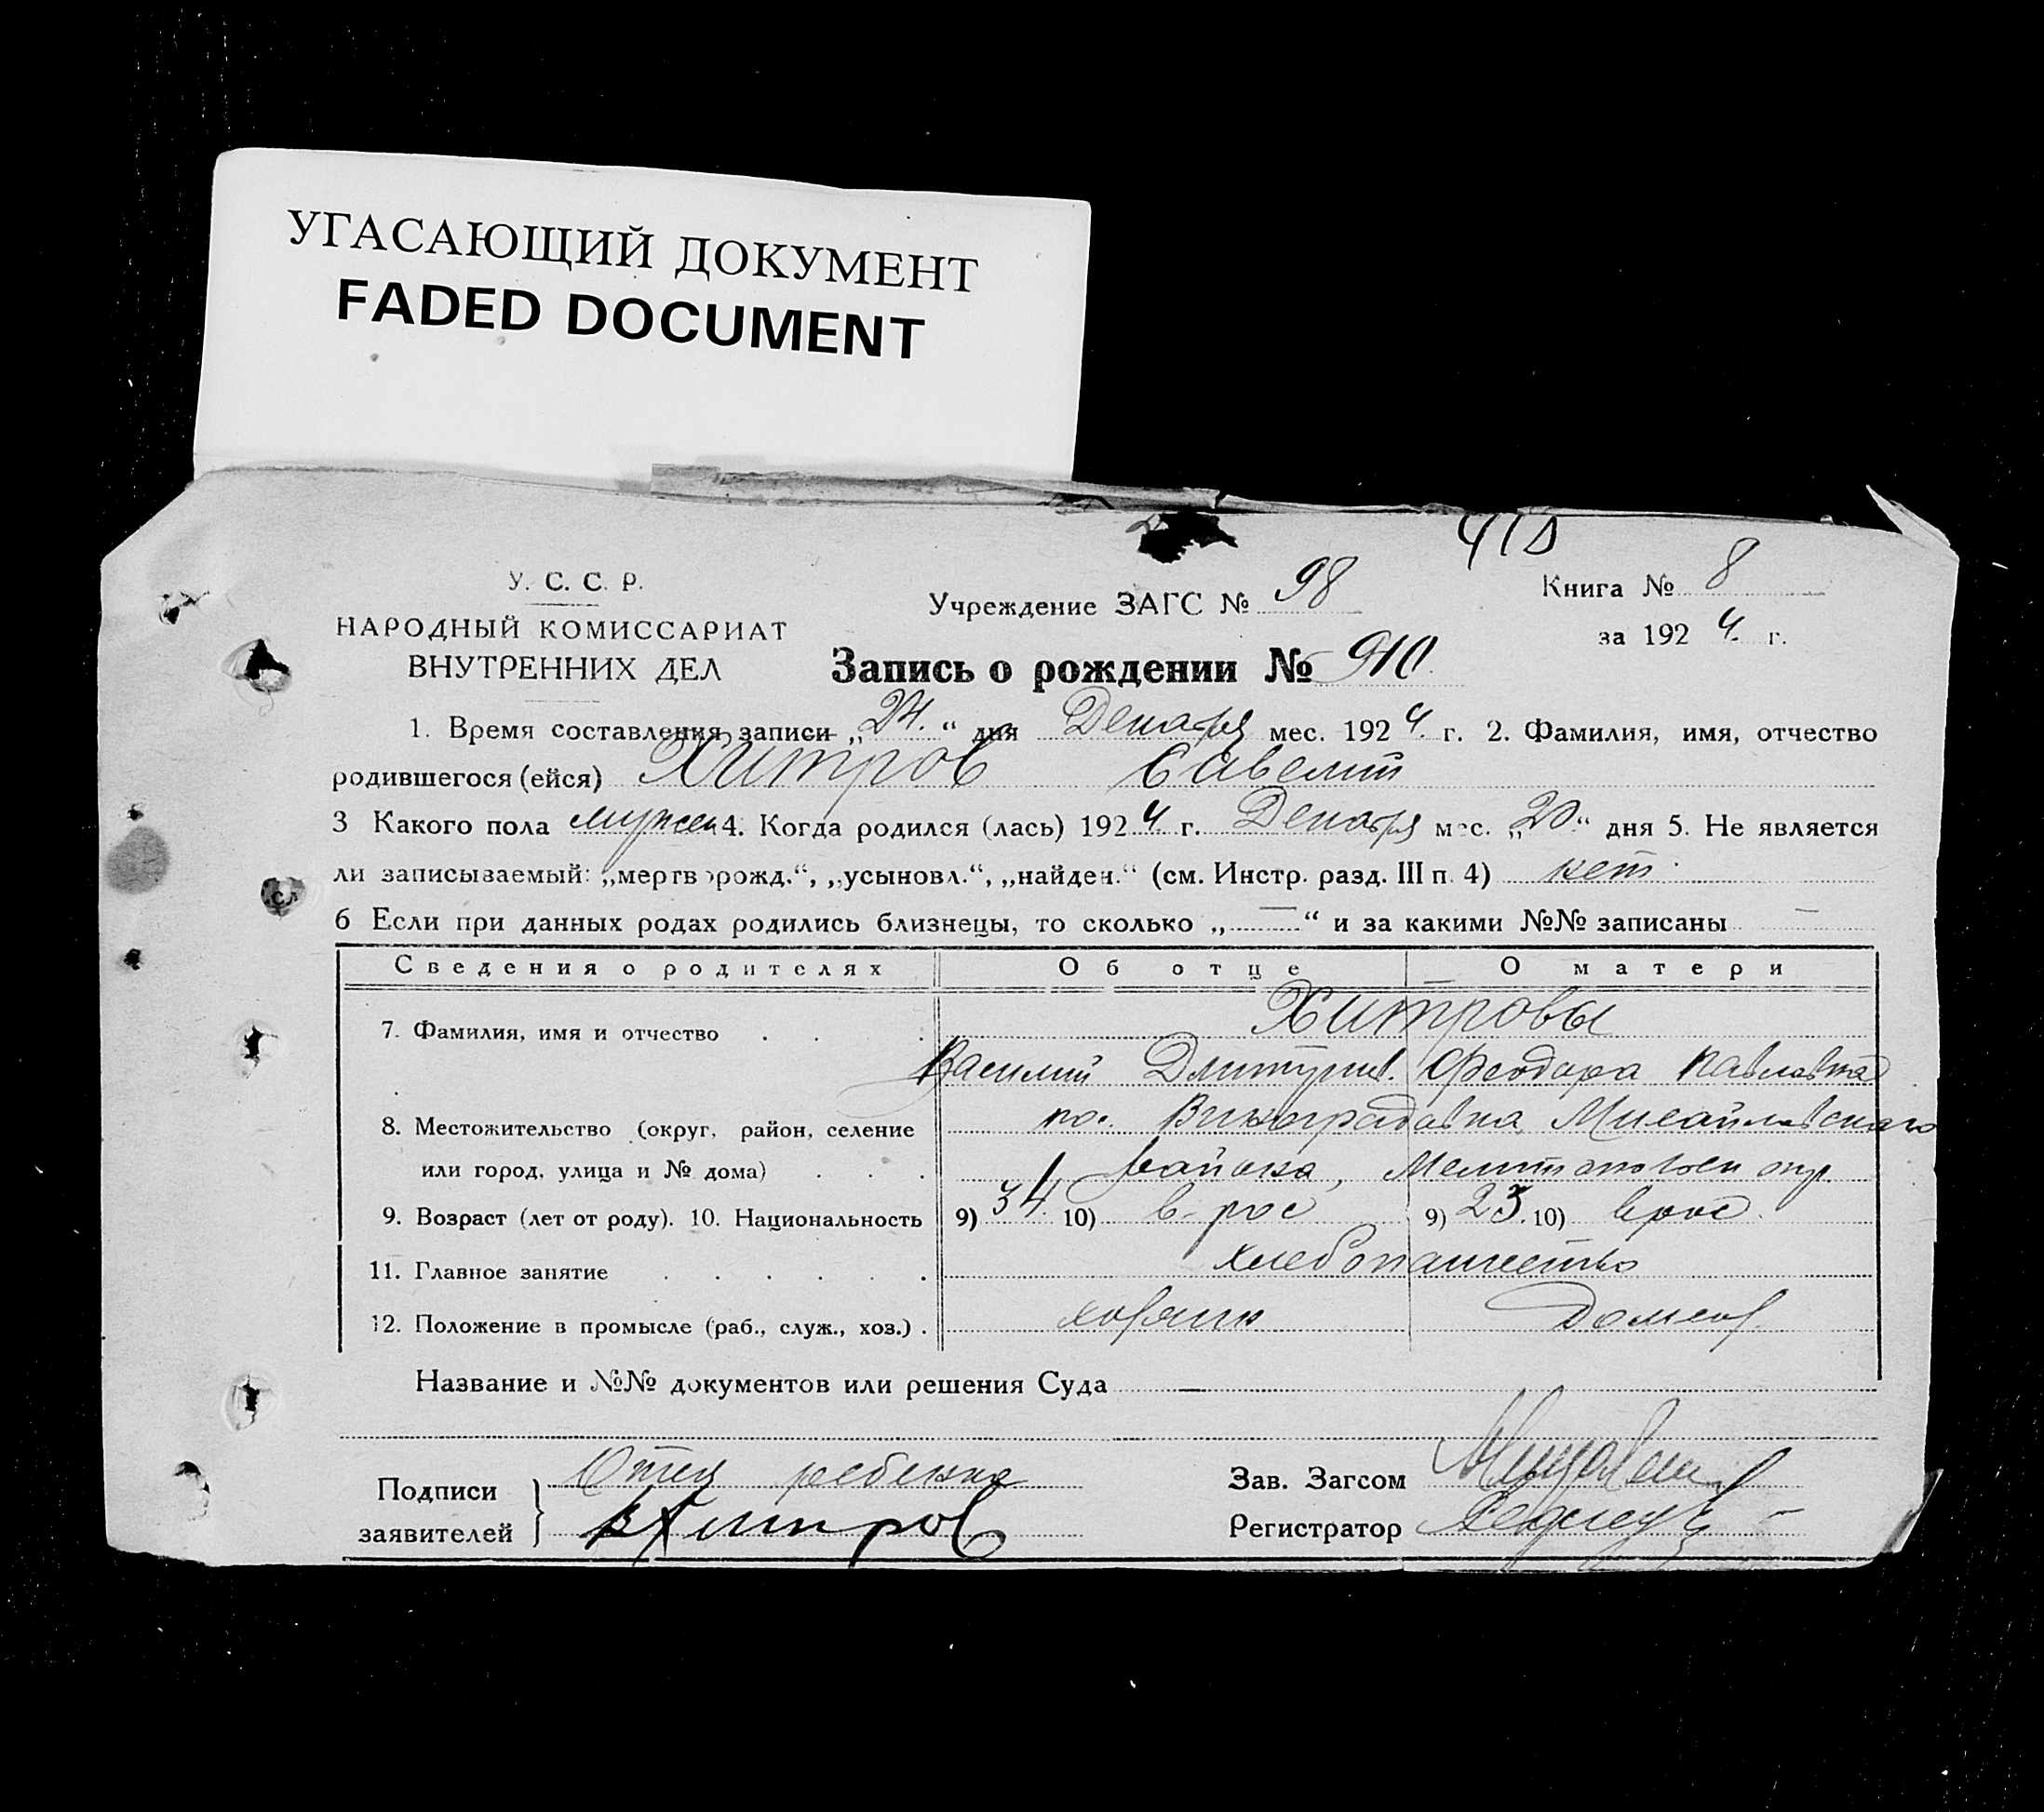 УГАСАЮЩИЙ ДОКУМЕНТ
FADED DOCUMENT
У. С. С. Р.
НАРОДНЫЙ КОМИССАРИАТ
ВНУТРЕННИХ ДЕЛ
Учреждение ЗАГС № 98
Книга № 8
за 1924 г.
Запись о рождении № 910
1. Время составления записи „24“ дня Декабря мес. 1924 г. 2. Фамилия, имя, отчество
родившегося (ейся) Хитров Савелий
3 Какого пола мужск 4. Когда родился (лась) 1924 г. Декабря мес. „20“ дня 5. Не является
ли записываемый: „мертворожд.“, „усыновл.“, „найден.“ (см. Инстр. разд. III п. 4) нет
6 Если при данных родах родились близнецы, то сколько „—“ и за какими №№ записаны —
Сведения о родителях Об отце О матери
Хитровы
7. Фамилия, имя и отчество
Василий Дмитриев. Феодора Павловна
8. Местожительство (округ, район, селение пос. Виноградовка Михайловского
или город, улица и № дома) района, Мелитопольск окр.
9. Возраст (лет от роду). 10. Национальность 9) 34 10) в-рос 9) 23. 10) врос.
11. Главное занятие хлебопашество
12. Положение в промысле (раб., служ., хоз.) хозяин домохоз.
Название и №№ документов или решения Суда —
Подписи заявителей
Отец ребенка
ВХитров
Зав. Загсом
Регистратор